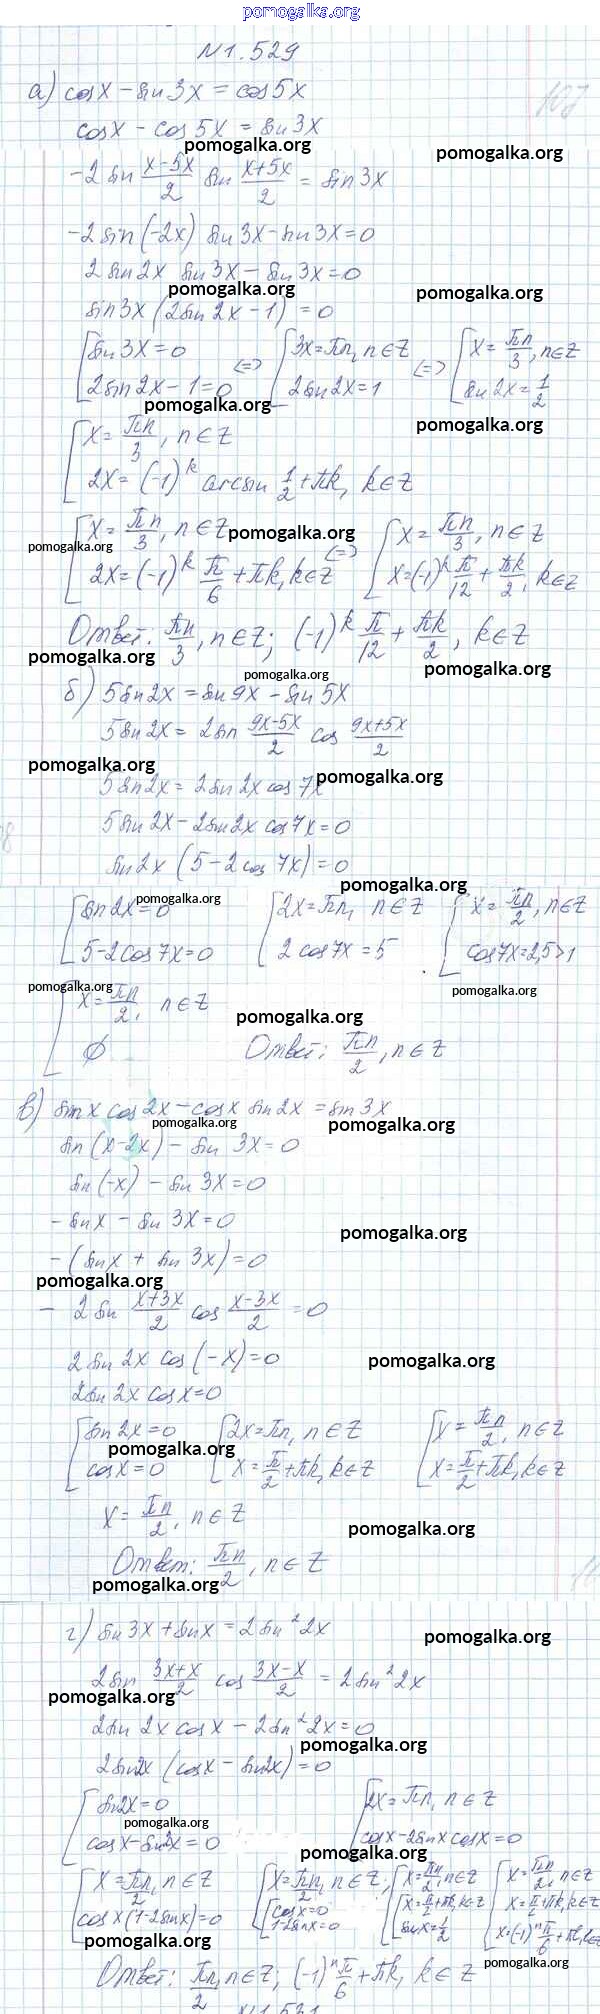 pomogalka.org
N 1.529
а) cosx - sin3x = cos5x
cosx - cos5x = sin3x
pomogalka.org pomogalka.org
-2 sin (x-5x)/2 sin (x+5x)/2 = sin3x
-2 sin(-2x) sin3x - sin3x = 0
2 sin2x sin3x - sin3x = 0
pomogalka.org pomogalka.org
sin3x (2sin2x - 1) = 0
[ sin3x = 0 <=> [ 3x = πn, n∈Z <=> [ x = πn/3, n∈Z
2sin2x - 1 = 0 2sin2x = 1 sin2x = 1/2
pomogalka.org pomogalka.org
[ x = πn/3, n∈Z
2x = (-1)^k arcsin 1/2 + πk, k∈Z
[ x = πn/3, n∈Z <=> [ x = πn/3, n∈Z
pomogalka.org pomogalka.org
2x = (-1)^k π/6 + πk, k∈Z x = (-1)^k π/12 + πk/2, k∈Z
Ответ: πn/3, n∈Z; (-1)^k π/12 + πk/2, k∈Z
pomogalka.org pomogalka.org pomogalka.org
б) 5sin2x = sin9x - sin5x
5sin2x = 2sin (9x-5x)/2 cos (9x+5x)/2
pomogalka.org pomogalka.org
5sin2x = 2sin2x cos7x
5sin2x - 2sin2x cos7x = 0
sin2x (5 - 2cos7x) = 0
pomogalka.org
[ sin2x = 0 [ 2x = πn, n∈Z [ x = πn/2, n∈Z
pomogalka.org
5 - 2cos7x = 0 2cos7x = 5 cos7x = 2,5 > 1
pomogalka.org pomogalka.org
[ x = πn/2, n∈Z
pomogalka.org
∅ Ответ: πn/2, n∈Z
в) sinx cos2x - cosx sin2x = sin3x
pomogalka.org pomogalka.org
sin(x-2x) - sin3x = 0
sin(-x) - sin3x = 0
-sinx - sin3x = 0
pomogalka.org
-(sinx + sin3x) = 0
pomogalka.org
- 2sin (x+3x)/2 cos (x-3x)/2 = 0
2sin2x cos(-x) = 0
pomogalka.org
2sin2x cosx = 0
[ sin2x = 0 [ 2x = πn, n∈Z [ x = πn/2, n∈Z
pomogalka.org
cosx = 0 x = π/2 + πk, k∈Z x = π/2 + πk, k∈Z
x = πn/2, n∈Z
pomogalka.org
Ответ: πn/2, n∈Z
pomogalka.org
г) sin3x + sinx = 2sin²2x
pomogalka.org
2sin (3x+x)/2 cos (3x-x)/2 = 2sin²2x
pomogalka.org
2sin2x cosx - 2sin²2x = 0
pomogalka.org
2sin2x (cosx - sin2x) = 0
[ sin2x = 0 [ 2x = πn, n∈Z
pomogalka.org
cosx - sin2x = 0 cosx - 2sinx cosx = 0
pomogalka.org
[ x = πn/2, n∈Z [ x = πn/2, n∈Z; [ x = πn/2, n∈Z [ x = πn/2, n∈Z
cosx(1-2sinx) = 0 [ cosx = 0 [ x = π/2 + πk, k∈Z x = π/2 + πk, k∈Z
1-2sinx = 0 sinx = 1/2 x = (-1)^n π/6 + πk, k∈Z
pomogalka.org
Ответ: πn/2, n∈Z; (-1)^n π/6 + πk, k∈Z
pomogalka.org